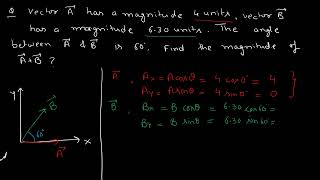 Q Vector A⃗ has a magnitude 4 units, vector B⃗
has a magnitude 6.30 units. The angle
between A⃗ & B⃗ is 60°. Find the magnitude of
A⃗+B⃗ ?
A⃗ : Ax = A cosθ = 4 cos0° = 4
Ay = A sinθ = 4 sin0° = 0
B⃗ : Bx = B cosθ = 6.30 cos60° =
By = B sinθ = 6.30 sin60° =
Y
B⃗
60°
X
A⃗